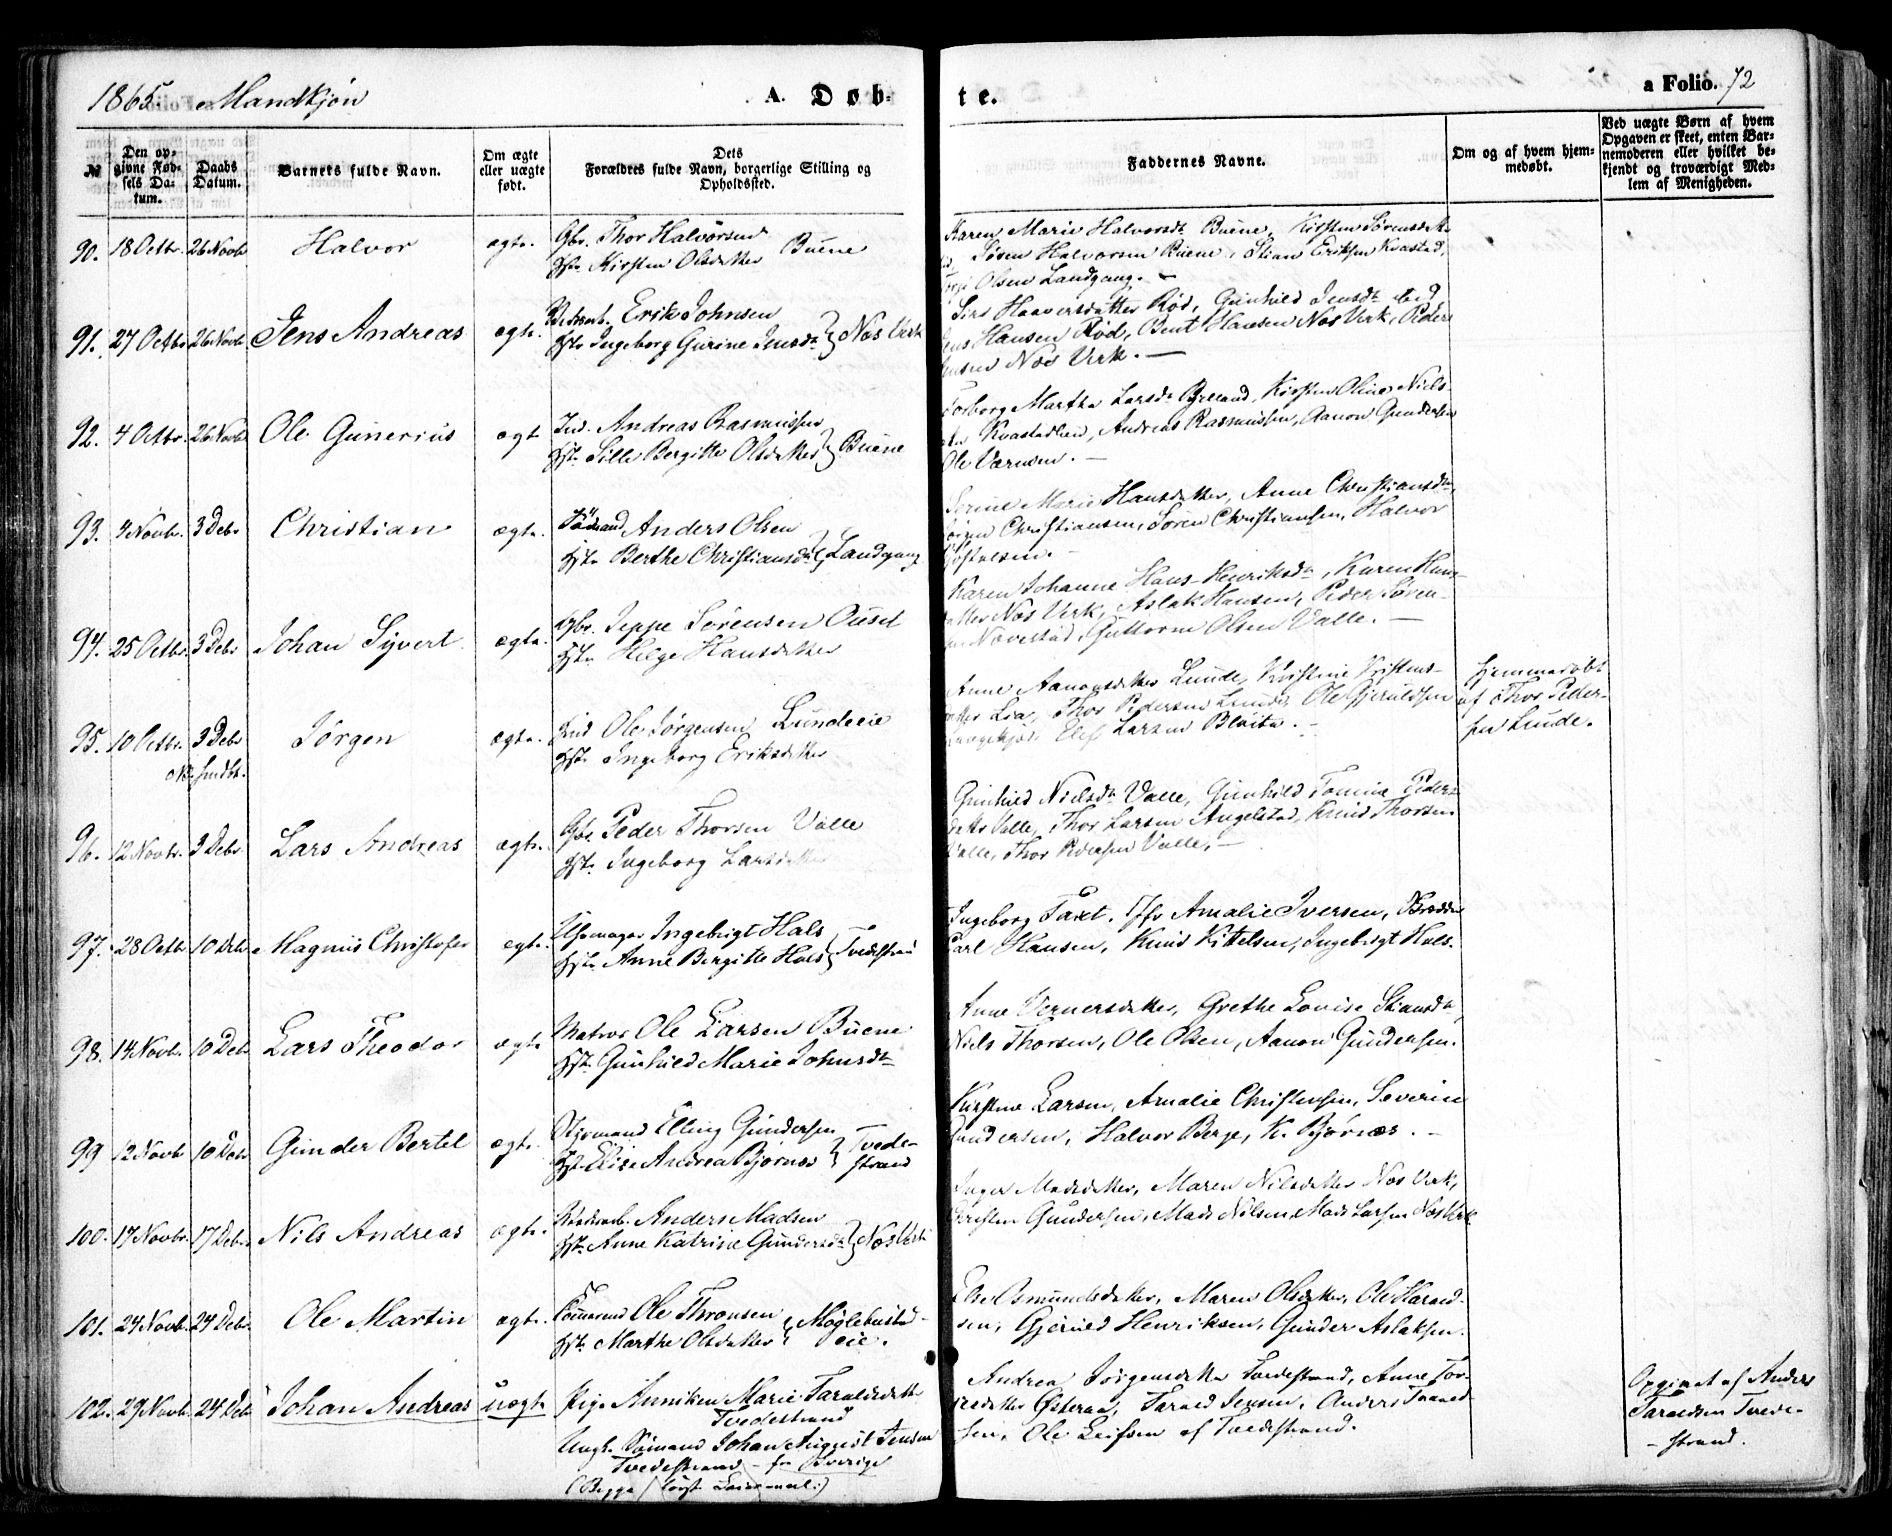 1865. Mandkjøn
A. Døbte.
a Folio. 72
№
Den opgivne Fødsels Datum.
Daabs Datum.
Barnets fulde Navn.
Om ægte eller uægte født.
Dets Forældres fulde Navn, borgerlige Stilling og Opholdssted.
Faddernes Navne.
Om og af hvem hjemmedøbt.
Ved uægte Børn af hvem Opgaven er skeet, enten Barnemoderen eller hvilket bekjendt og troværdigt Medlem af Menigheden.
90. 18 Octbr. 26 Novbr Halvor ægte. Gbr. Thor Halvorsen Buene
Hst. Kirsten Olsdatter
Karen Marie Halvorsdt Buene, Kirsten Sørensdatter
Søren Halvorsen Buene, Stian Eriksen Kvastad,
Olsen Landgang. —
91. 27 Octbr 26 Novb Jens Andreas ægte. Erik Johnsen
Hst. Ingeborg Gurine Jensdt } Næs Verk
Siri Haaversdatter Rød, Gunhild Jensdt ibid,
Jens Hansen Rød, Bent Hansen Næs Verk, Peder
Jensen Næs Verk. —
92. 4 Octbr. 26 Novb Ole Gunerius ægt Ind. Andreas Rasmussen
Hst. Sille Bergitte Olsdatter } Buene
Torborg Marthe Larsdt Bylland, Kirsten Oline Niels-
Kvastadlien, Andreas Rasmussen, Aanon Gundersen
Ole Værnsen. —
93. 4 Novbr. 3 Debr Christian ægte. Sømand Anders Olsen
Hst. Berthe Christiansdt } Landgang
Serine Marie Hansdatter, Anne Christiansdt,
Jørgen Christiansen, Søren Christiansen, Halvor
94. 25 Octbr. 3 Debr Johan Syvert ægte. Gbr. Jeppe Sørensen Ouset
Hst. Helge Hansdatter
Karen Johanne Hans-Henriksdt, Karen Han-
datter Næs Verk, Aslak Hansen, Peder Søren-
sen Nævestad, Guttorm Olsen Valle. —
95. 10 Octbr. 3 Debr Jørgen ægte. Ind Ole Jørgensen Lundeeie
Hst. Ingeborg Eriksdatter
Anne Aanonsdatter Lunde, Kristine Kristens-
datter Lia, Thor Pedersen Lunde, Ole Gjeruldsen
Langekjær, Elef Larsen Blaita. —
hjemmedøbt
af Thor Peder-
sen Lunde.
96. 12 Novbr. 3 Debr Lars Andreas ægte. Gbr Peder Thorsen Valle
Hst. Ingeborg Larsdatter
Gunhild Nielsdt Valle, Gunhild Tomine Peders-
datter Valle, Thor Larsen Angelstad, Knud Thorsen
Valle, Thor Pedersen Valle. —
97. 28 Octbr 10 Debr Magnus Christofer ægte. Uhrmager Ingebrigt Hals
Hst. Anne Bergitte Hals } Tvedestrand
Ingeborg Taxt, Jfr Amalie Iversen,
Carl Hansen, Knud Kittelsen, Ingebrigt Hals.
98. 14 Novbr. 10 Debr Lars Theodor ægte Matros Ole Larsen Buene
Hst. Gunhild Marie Johnsdt
Anne Vernersdatter, Grethe Lovise Stiansdt,
Niels Thorsen, Ole Olsen, Aanon Gundersen.
99 12 Novbr 10 Debr Gunder Bertel ægte. Styrmand Elling Gundersen
Hst. Elise Andrea Bjørnæs } Tvede-
strand
Kirstine Larsen, Amalie Christensen, Severin
Gundersen, Halvor Berge, K. Bjørnæs. —
100. 17 Novbr. 17 Debr. Nils Andreas ægte. Anders Madsen
Hst. Anne Katrine Gundersdt } Næs Verk
Inger Madsdatter, Maren Nilsdatter Næs Verk,
Christen Gundersen, Mads Nilsen, Mads Larsen Næs Verk
101. 24 Novbr. 24 Debr. Ole Martin ægte. Tømmermd Ole Thronsen
Hst. Marthe Olsdatter } Møglebustad-
eie.
Else Osmundsdatter, Maren Olsdatter, Ole Harald-
sen, Gjeruld Henriksen, Gunder Aslaksen.
102. 29 Novbr. 24 Debr Johan Andreas uægte Pige Anniken Marie Taraldsdatter
Tvedestrand
Ungk. Sømand Johan August Jensen
Tvedestrand – fra Sverige
(Begge første Leiermaal.)
Andrea Jørgensdatter Tvedestrand, Anne Tor-
datter Østeraa, Tarald Jensen, Anders Taarald-
sen, Ole Leifsen af Tvedestrand.
Opgivet af Anders
Taraldsen Tvede-
strand.